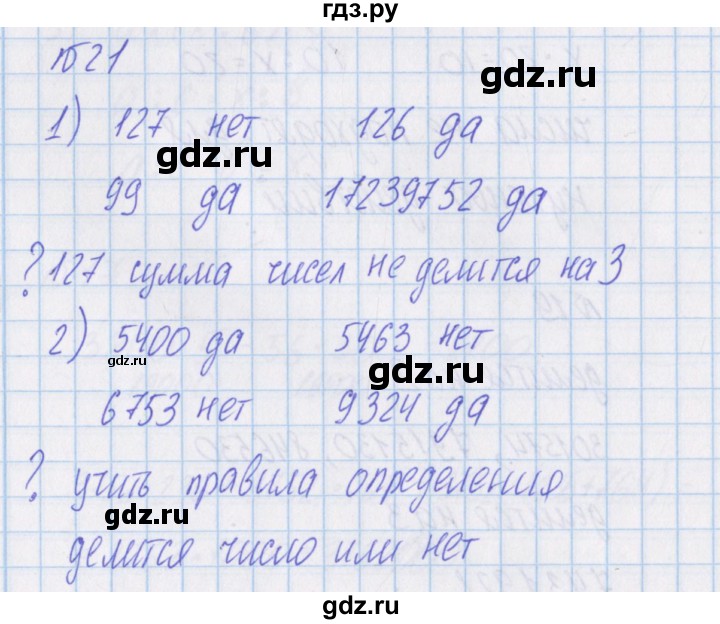 гдз.ру
№21
gdz.ru
1) 127 нет 126 да
gdz.ru gdz.ru
99 да 17239752 да
? 127 сумма чисел не делится на 3
2) 5400 да 5463 нет
gdz.ru gdz.ru
6753 нет 9324 да
? учить правила определения
gdz.ru
делится число или нет
gdz.ru